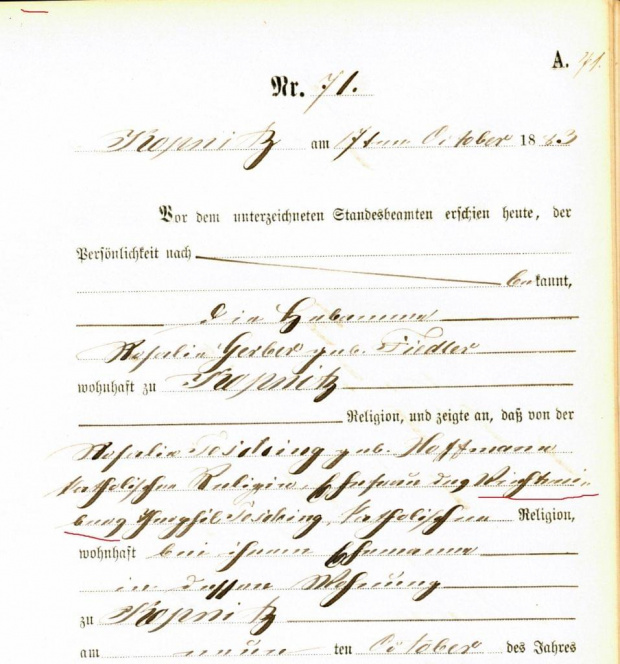 A. 71.
Nr. 71.
Kopnitz am 17ten October 1883
Vor dem unterzeichneten Standesbeamten erschien heute, der
Persönlichkeit nach
bekannt,
die Hebamme
Rosalie Gerber geb. Fiedler
wohnhaft zu Kopnitz
Religion, und zeigte an, daß von der
Rosalie Tesching geb. Hoffmann
katholischer Religion, Ehefrau des
Tesching, katholischen Religion,
wohnhaft bei ihrem Ehemanne
in dessen Wohnung
zu Kopnitz
am neun ten October des Jahres